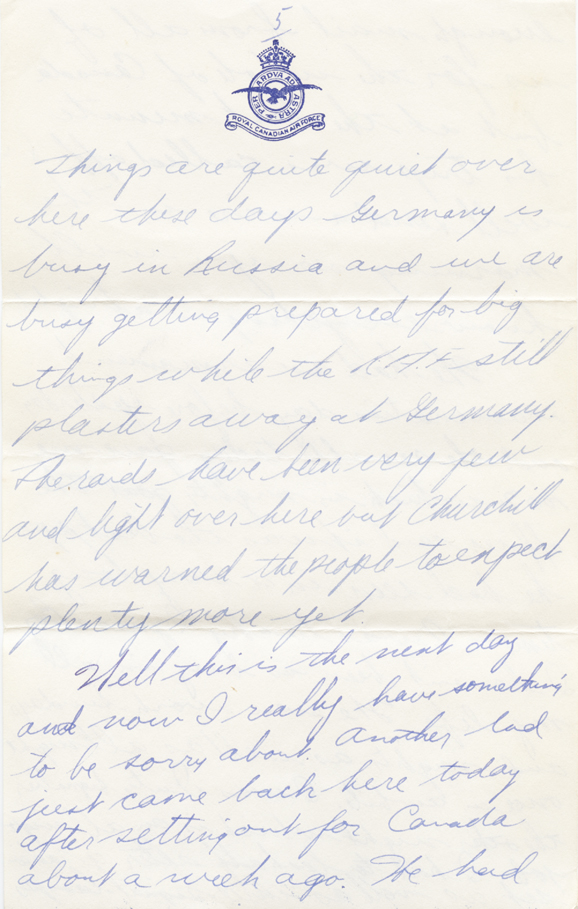 5
PER ARDVA AD ASTRA
ROYAL CANADIAN AIR FORCE
Things are quite quiet over
here these days Germany is
busy in Russia and we are
busy getting prepared for big
things while the R.A.F still
plasters away at Germany.
The raids have been very few
and light over here but Churchill
has warned the people to expect
plenty more yet.
Well this is the next day
and now I really have something
to be sorry about. Another lad
just came back here today
after setting out for Canada
about a week ago. He had